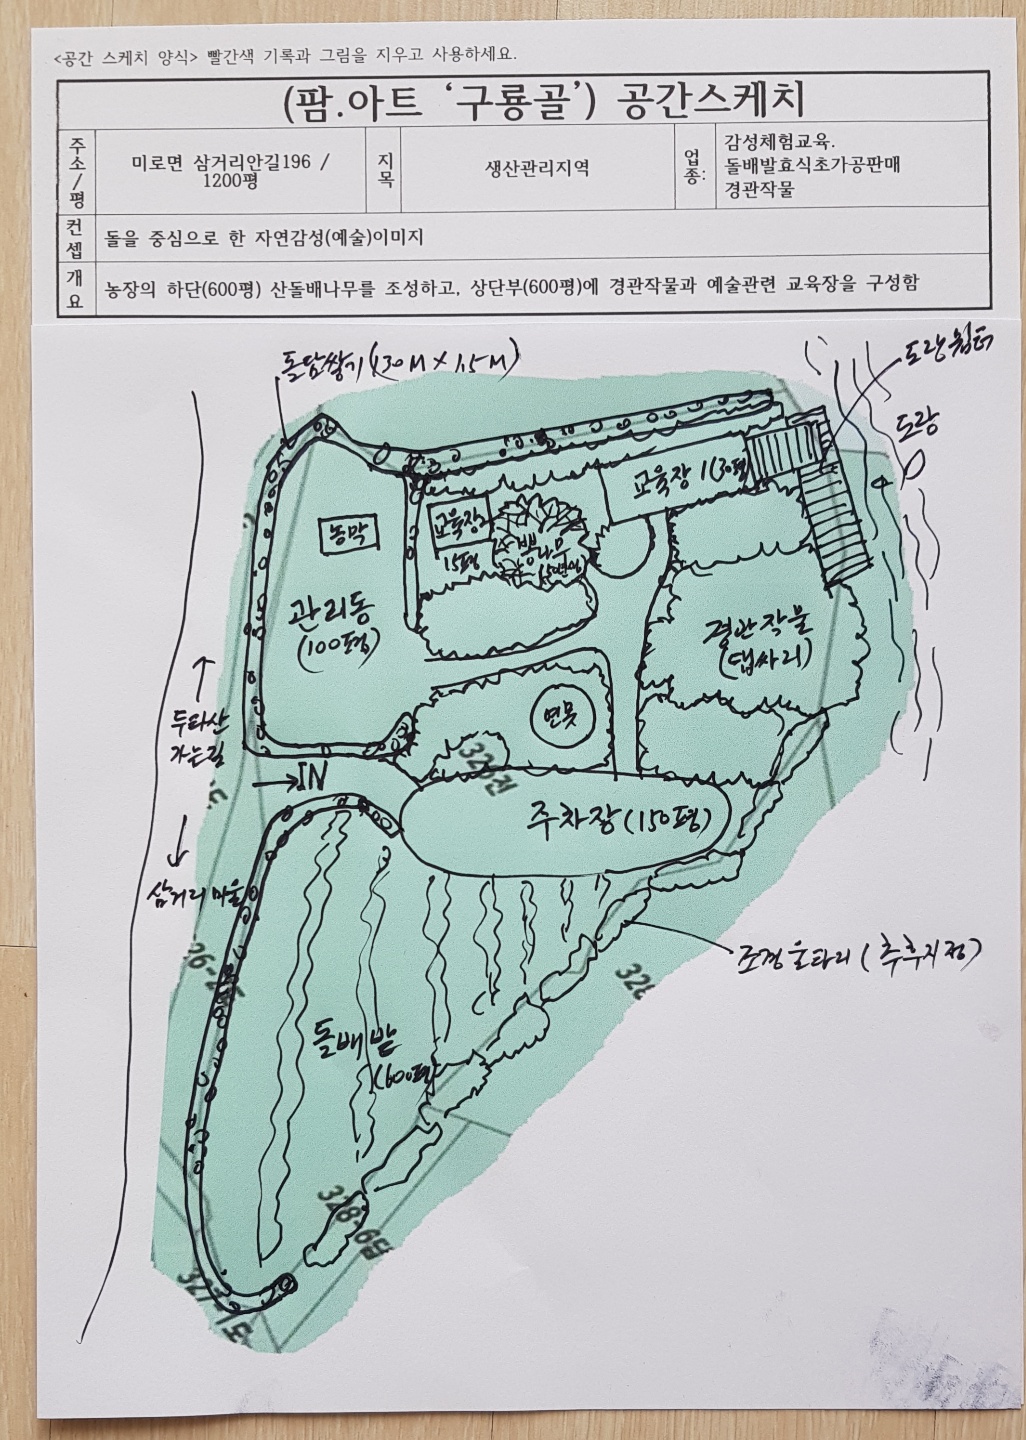 <공간 스케치 양식> 빨간색 기록과 그림을 지우고 사용하세요.
(팜.아트 '구룡골') 공간스케치
주소/평
미로면 삼거리안길196 /
1200평
지목
생산관리지역
업종:
감성체험교육.
돌배발효식초가공판매
경관작물
컨셉
돌을 중심으로 한 자연감성(예술)이미지
개요
농장의 하단(600평) 산돌배나무를 조성하고, 상단부(600평)에 경관작물과 예술관련 교육장을 구성함
돌담쌓기(130M X 1.5M)
도랑쉼터
도랑
교육장 1(30평)
농막
교육장2
15평
뽕나무
관리동
(100평)
경관작물
(댑싸리)
연못
두타산
가는길
IN
326전
주차장(150평)
삼거리 마을
조경울타리 (추후지정)
돌배밭
(600평)
328-6답
327-1도